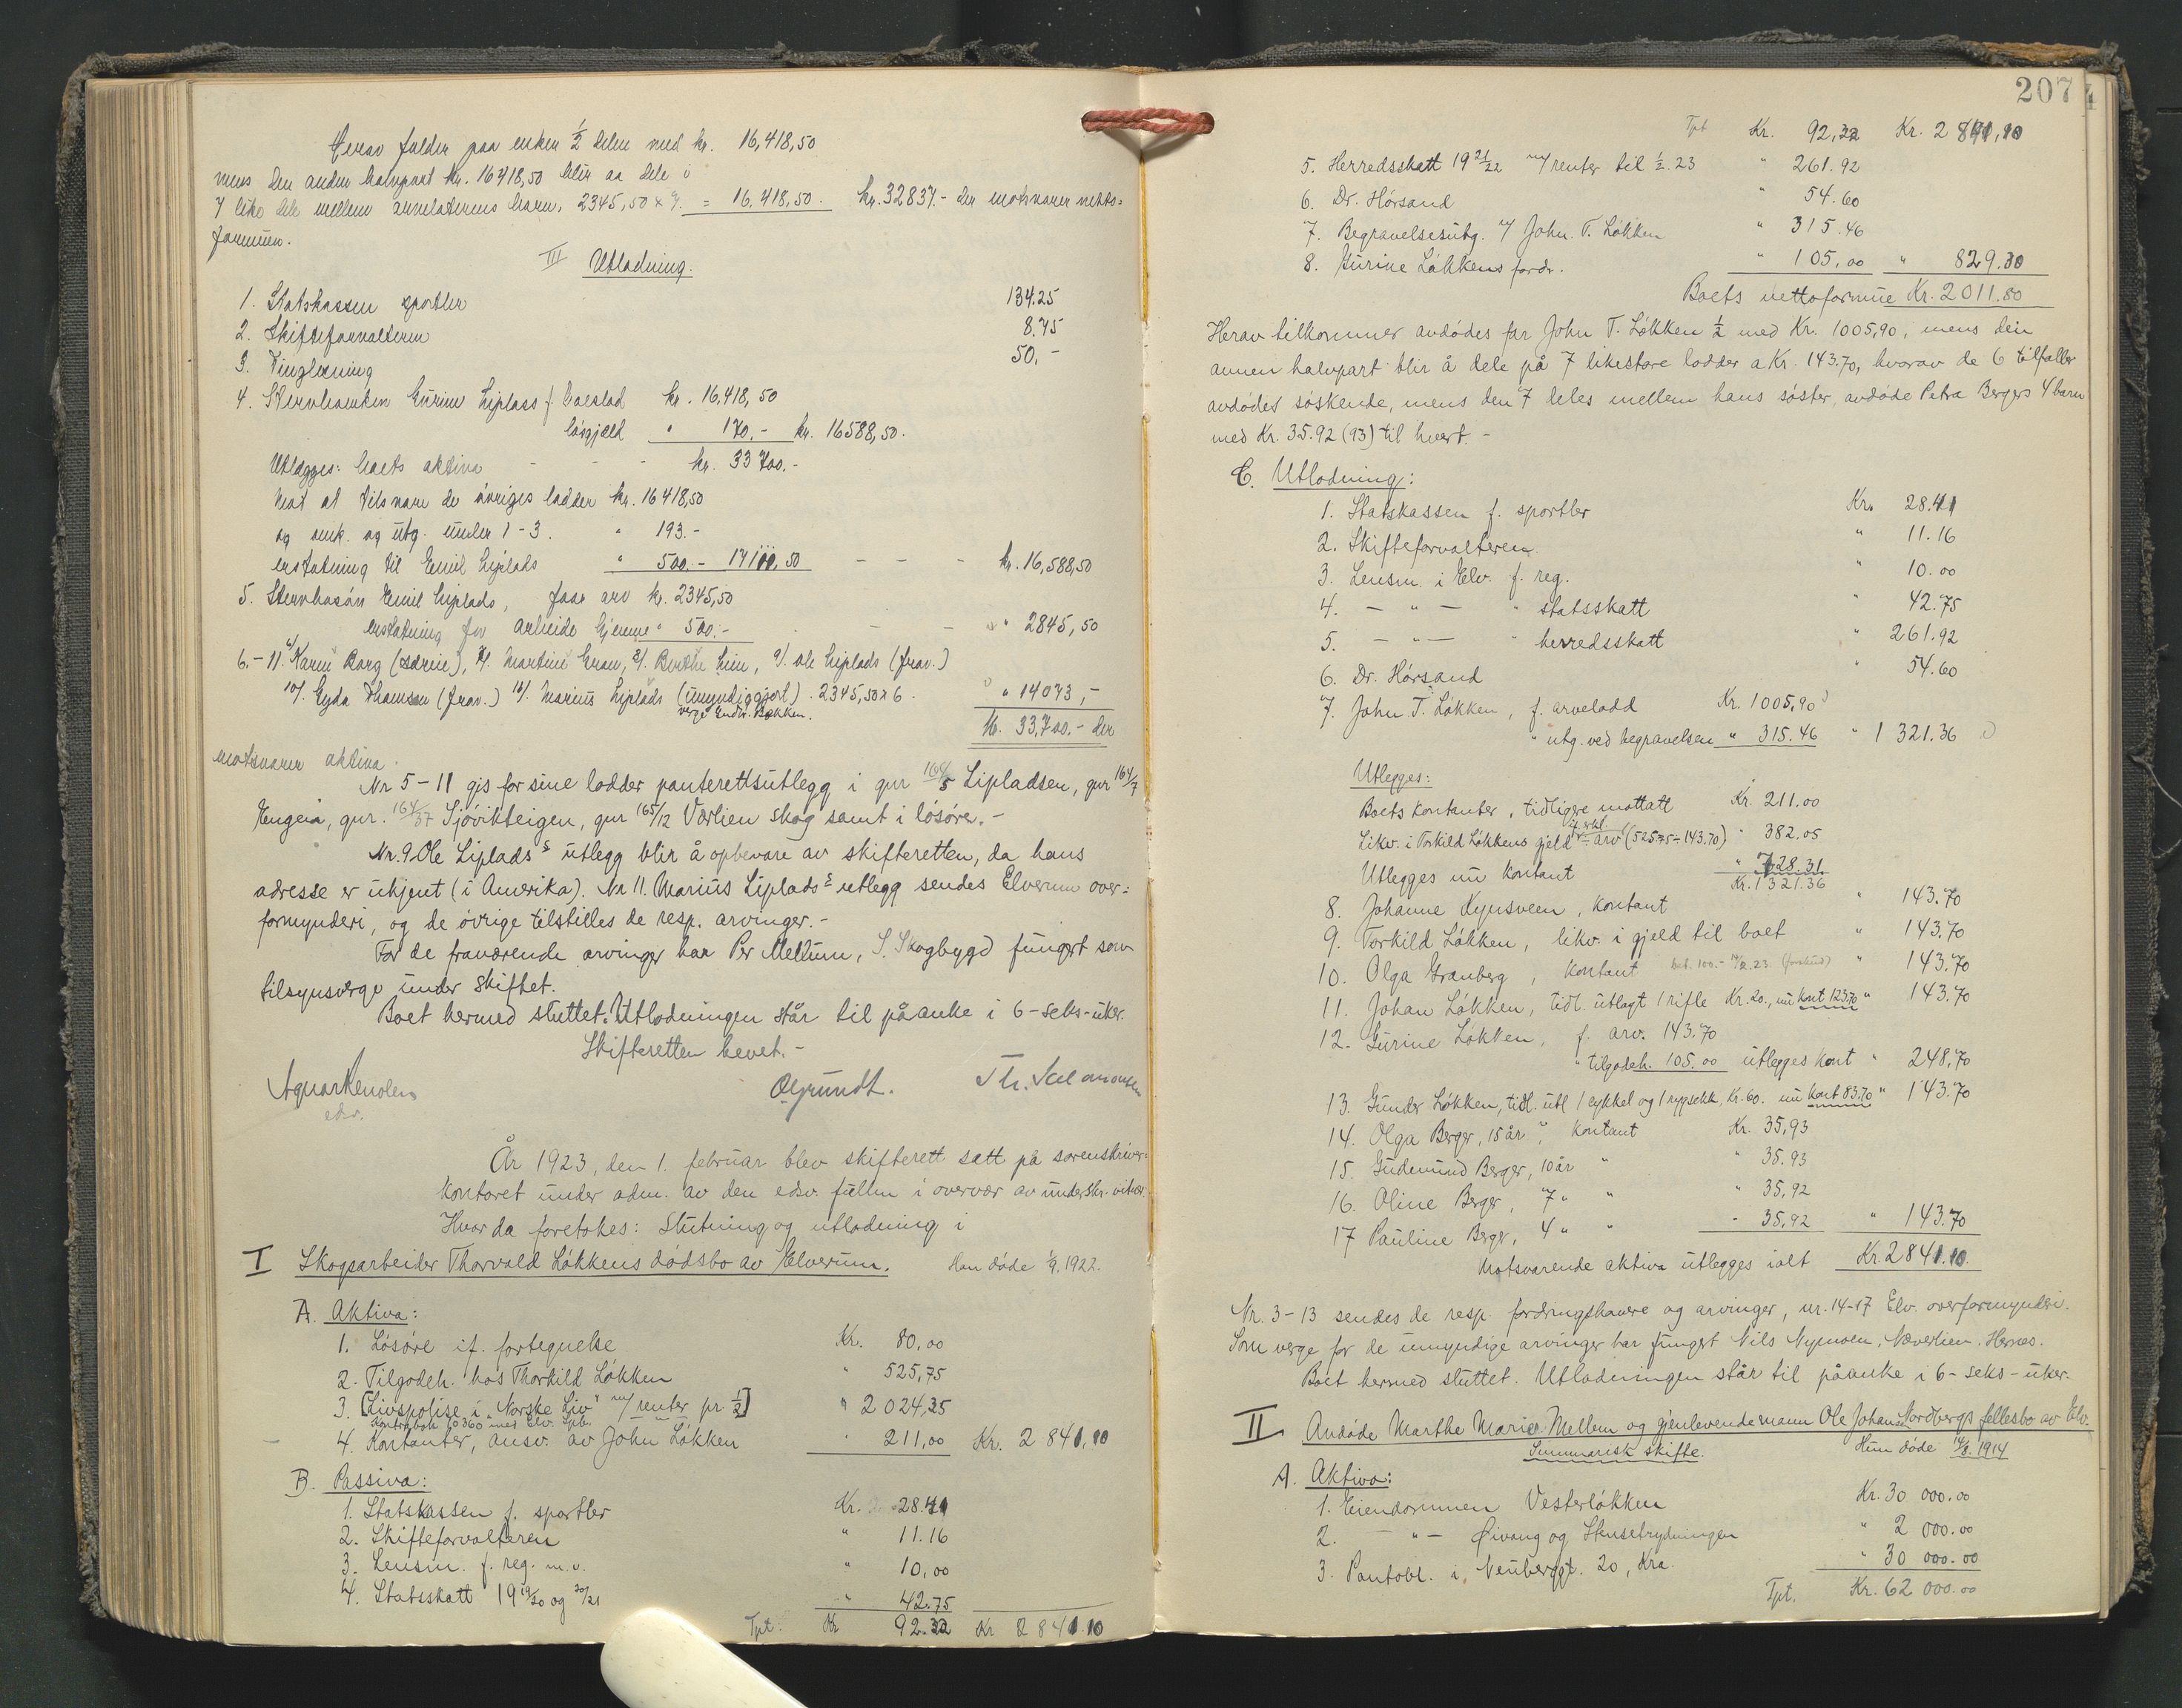 Herav falder paa enken ½ delen med kr. 16,418,50
mens den anden halvpart kr. 16418,50 blir aa dele i
7 like dele mellem arvelaterens barn, 2345,50 x 7. = 16,418,50. kr. 32837.- der motsvarer netto=
formuen.
III Utlodning.
1. Statskassen sportler 134.25
2. Skifteforvalteren 8.75
3. Tinglæsning 50.-
4. Stervboenken Gurine Liplass f. boeslod kr. 16,418,50
løsgjæld " 170.- kr. 16588,50.
Utlægges: boets aktiva - - - kr. 33700.-
mot at tilsvare de øvriges lodder kr. 16418,50
og omk. og utg. under 1-3. " 193.-
erstatning til Emil Liplads " 500.- 17111,50 - - - kr. 16,588,50
5. Stervbosøn Emil Liplads, faar arv kr. 2345,50
erstatning for arbeide hjemme " 500.- - - " 2845,50
6.-11. 6/ Karen Borg (særeie), 7/. Martine Gran, 8/. Berthe Lien, 9/. Ole Liplads (frav.)
10/. Gyda Thomsen (frav.) 11/. Marius Liplads (umyndiggjort). 2345,50 x 6. " 14073,-
verge Endr. Bakken.
kr. 33,700.- der
motsvarer aktiva.
Nr 5-11 gis for sine lodder panterettsutlegg i gnr 164/5 Lipladsen, gnr 164/7
Engen, gnr. 164/37 Sjøvikteigen, gnr 165/12 Værlien skog samt i løsøre.-
Nr. 9 Ole Liplads s utlegg blir å opbevare av skifteretten, da hans
adresse er ukjent (i Amerika). Nr 11. Marius Liplads s utlegg sendes Elverum over=
formynderi, og de øvrige tilstilles de resp. arvinger.-
For de fraværende arvinger har Per Mellum, S. Skogbygd fungert som
tilsynsverge under skiftet.
Boet hermed sluttet. Utlodningen står til påanke i 6-seks-uker.
Skifteretten hevet.-
edsv.
O. Grundt. Th. Salomonsen
År 1923, den 1. februar blev skifterett satt på sorenskriver=
kontoret under adm. av den edsv. fullm i overvær av underskr. vitner.
Hvor da foretokes: Slutning og utlodning i
I Skogsarbeider Thorvald Løkkens dødsbo av Elverum. Han døde 1/9. 1922.
A. Aktiva:
1. Løsøre if. fortegnelse Kr. 80,00
2. Tilgodeh. hos Thorkild Løkken " 525,75
3. [Livspolise i "Norske Liv" m/ renter pr ½] " 2024,35
Kontrabok 10360 med Elv. Spb.
4. Kontanter, ansv. av John Løkken " 211,00 Kr. 2841,10
B. Passiva:
1. Statskassen f. sportler Kr. 28.41
2. Skifteforvalteren " 11.16
3. Lensm. f. reg. m.v. " 10,00
4. Statsskatt 19 19/20 og 20/21 " 42.75
Tpt. Kr 92.32 Kr 2841.10
207
Tpt Kr. 92,32 Kr. 2841,10
5. Herredsskatt 19 21/22 m/ renter til ½. 23 " 261.92
6. Dr. Hørsand " 54.60
7. Begravelsesutg. v/ John T. Løkken " 315.46
8. Gurine Løkkens fordr. " 105,00 " 829.30
Boets nettoformue Kr. 2011.80
Herav tilkommer avdødes far John T. Løkken ½ med Kr. 1005,90, mens den
annen halvpart blir å dele på 7 likestore lodder a Kr. 143.70, hvorav de 6 tilfaller
avdødes søskende, mens den 7 deles mellem hans søster, avdøde Petra Bergers 4 barn
med Kr. 35.92 (93) til hvert.-
C. Utlodning:
1. Statskassen f. sportler Kr. 28.41
2. Skifteforvalteren " 11.16
3. Lensm. i Elv. f. reg. " 10.00
4. - " - " statsskatt " 42.75
5. - " - " herredsskatt " 261.92
6. Dr. Hørsand " 54.60
7. John T. Løkken, f. arvelodd Kr. 1005,90
" utg. ved begravelsen " 315.46 " 1321.36
Utlegges:
Boets kontanter, tidligere mottatt Kr. 211.00
Likv. i Torkild Løkkens gjeld ÷ arv (525.75 ÷ 143.70) " 382.05
Utlegges nu kontant " 728.31
Kr. 1321.36
8. Johanne Kynsveen, kontant " 143.70
9. Torkild Løkken, likv. i gjeld til boet " 143.70
10. Olga Granberg, kontant bet. 100.- (forskud) " 143.70
11. Johan Løkken, tidl. utlagt 1 rifle Kr. 20., nu kont 123.70 " 143.70
12. Gurine Løkken, f. arv. 143.70
" tilgodeh. 105.00 utlegges kont " 248,70
13. Gunder Løkken, tidl. utl 1 cykkel og 1 rypsekk, Kr. 60. nu kont 83.70 " 143.70
14. Olga Berger, 15 år, kontant Kr. 35,93
15. Gudmund Berger, 10 år " " 35.93
16. Oline Berger, 7 " " " 35,92
17 Pauline Berger, 4 " " " 35,92 " 143.70
Motsvarende aktiva utlegges ialt Kr. 2841.10.
Nr. 3-13 sendes de resp. fordringshavere og arvinger, nr. 14-17 Elv. overformynderi.
Som verge for de umyndige arvinger har fungert Nils Nymoen, Næverlien. Hernes.
Boet hermed sluttet. Utlodningen står til påanke i 6-seks-uker.
II Avdøde Marthe Marie Mellem og gjenlevende mann Ole Johan Nordbergs fellesbo av Elv.
Summarisk skifte. Hun døde 14/8. 1914
A. Aktiva:
1. Eiendommen Vesterløkken Kr. 30 000.00
2. - " - Øivang og Stensetrydningen " 2 000.00
3. Pantobl. i Neuberggt. 20, Kra. " 30 000.00
Tpt. Kr. 62 000.00